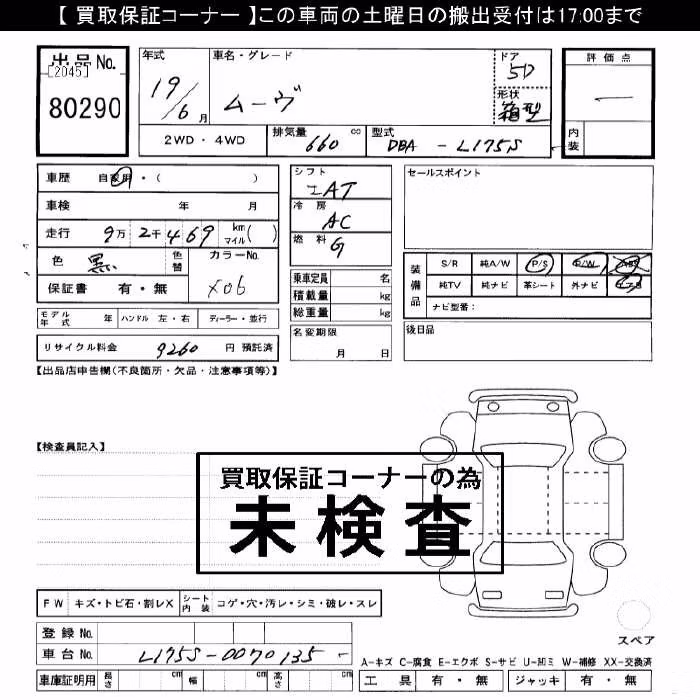 【 買取保証コーナー 】この車両の土曜日の搬出受付は17:00まで
出品No.
[2045]
80290
年式
19/6月
車名・グレード
ムーヴ
ドア
5D
形状
箱型
評価点
—
内装
2WD・4WD
排気量 660 cc
型式 DBA - L175S
車歴 自家用・( )
車検 年 月
走行 9万2千469 km マイル( )
色 黒 色替
カラーNo.
X06
保証書 有・無
シフト
IAT
冷房
AC
燃料
G
乗車定員 名
積載量 kg
総重量 kg
セールスポイント
装備品
S/R 純A/W P/S P/W ABS
純TV 純ナビ 革シート 外ナビ
ナビ型番:
モデル年式 年 ハンドル 左・右 ディーラー・並行
リサイクル料金 9260 円 預託済
名変期限
月 日
後日品
【出品店申告欄(不良箇所・欠品・注意事項等)】
【検査員記入】
買取保証コーナーの為
未検査
FW キズ・トビ石・割レX シート内装 コゲ・穴・汚レ・シミ・破レ・スレ
登録No.
車台No. L175S-0070135-
車庫証明用 長さ cm 幅 cm 高さ cm
スペア
A-キズ C-腐食 E-エクボ S-サビ U-凹ミ W-補修 XX-交換済
工具 有・無 ジャッキ 有・無